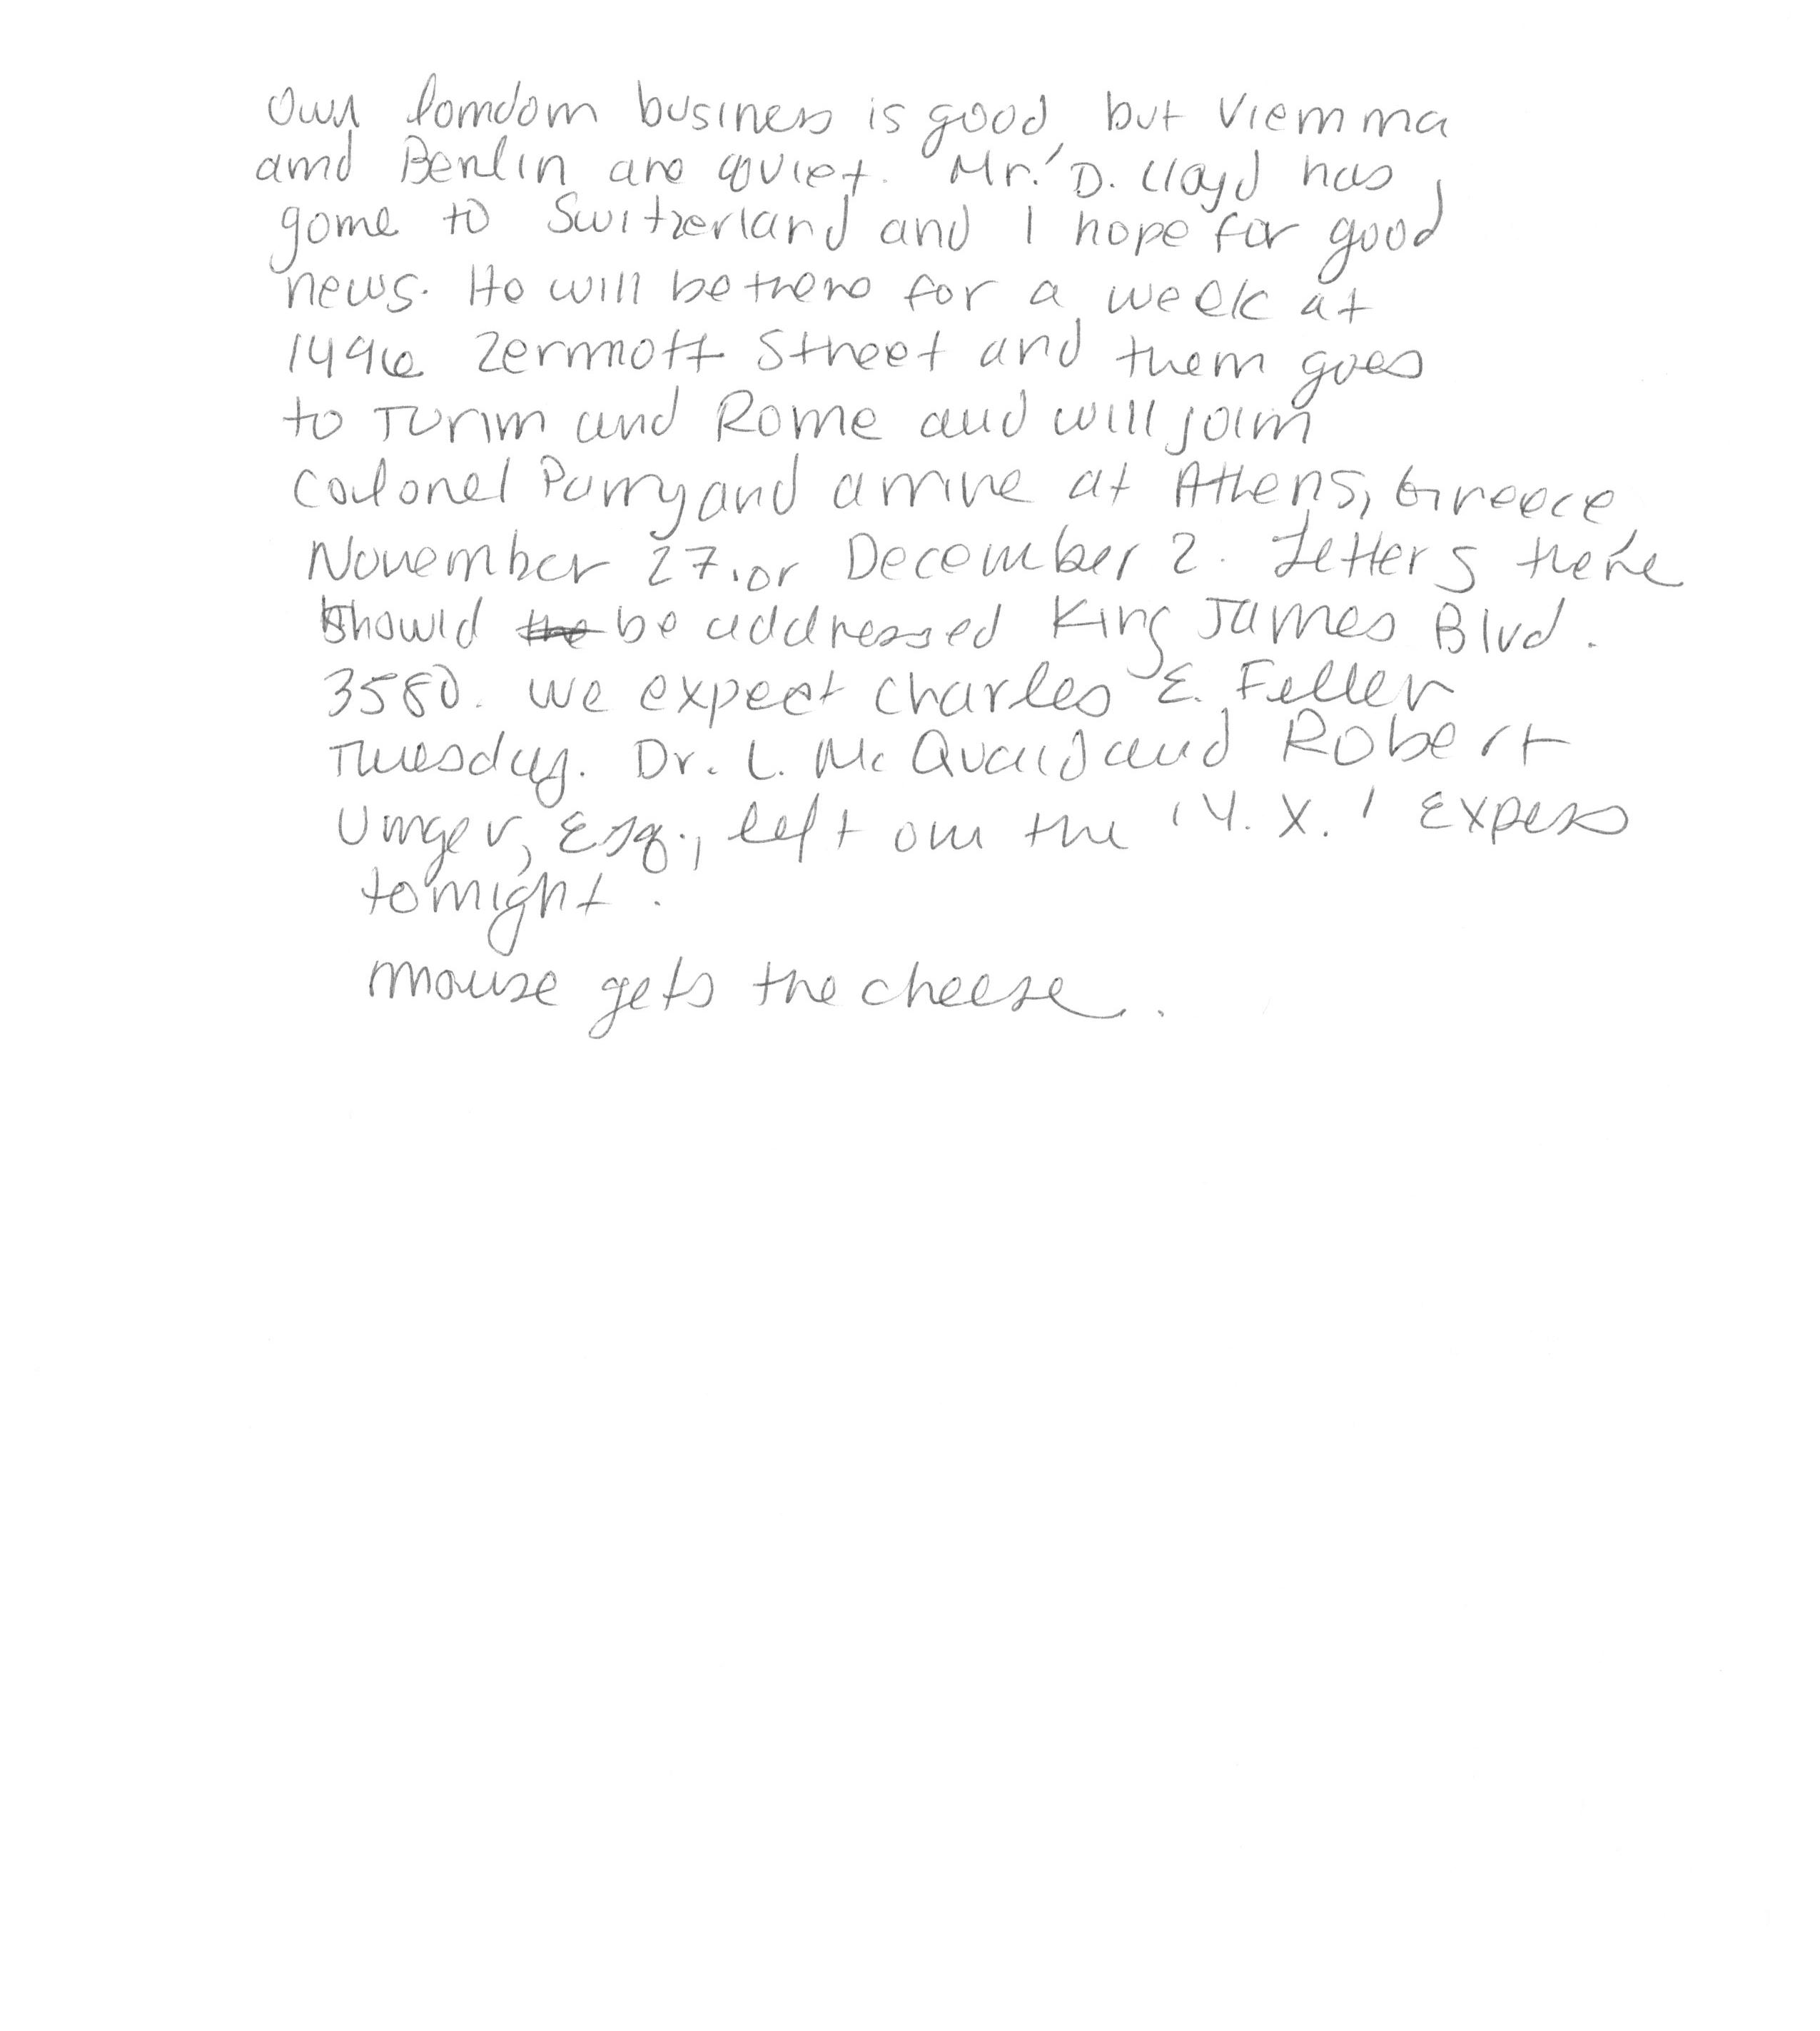 Our London business is good, but Vienna
and Berlin are quiet. Mr. D. Lloyd has
gone to Switzerland and I hope for good
news. He will be there for a week at
1496 Zermott Street and then goes
to Turin and Rome and will join
Colonel Parry and arrive at Athens, Greece,
November 27. or December 2. Letters there
should the be addressed King James Blvd.
3580. We expect Charles E. Feller
Tuesday. Dr. L. McQuaid and Robert
Unger, Esq., left on the 'Y. X.' Expess
tonight.
Mouse gets the cheese.